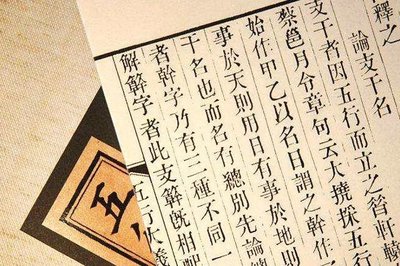 釋之
論支干名
支干者因五行而立之昔軒轅
蔡邕月令章句云大撓採五行
始作甲乙以名日謂之幹作
事於天則用日有事於地則
干名也而名有總別先論總
者幹字乃有三種不同一
解簳字者此支簳旣相配
五行大義
五